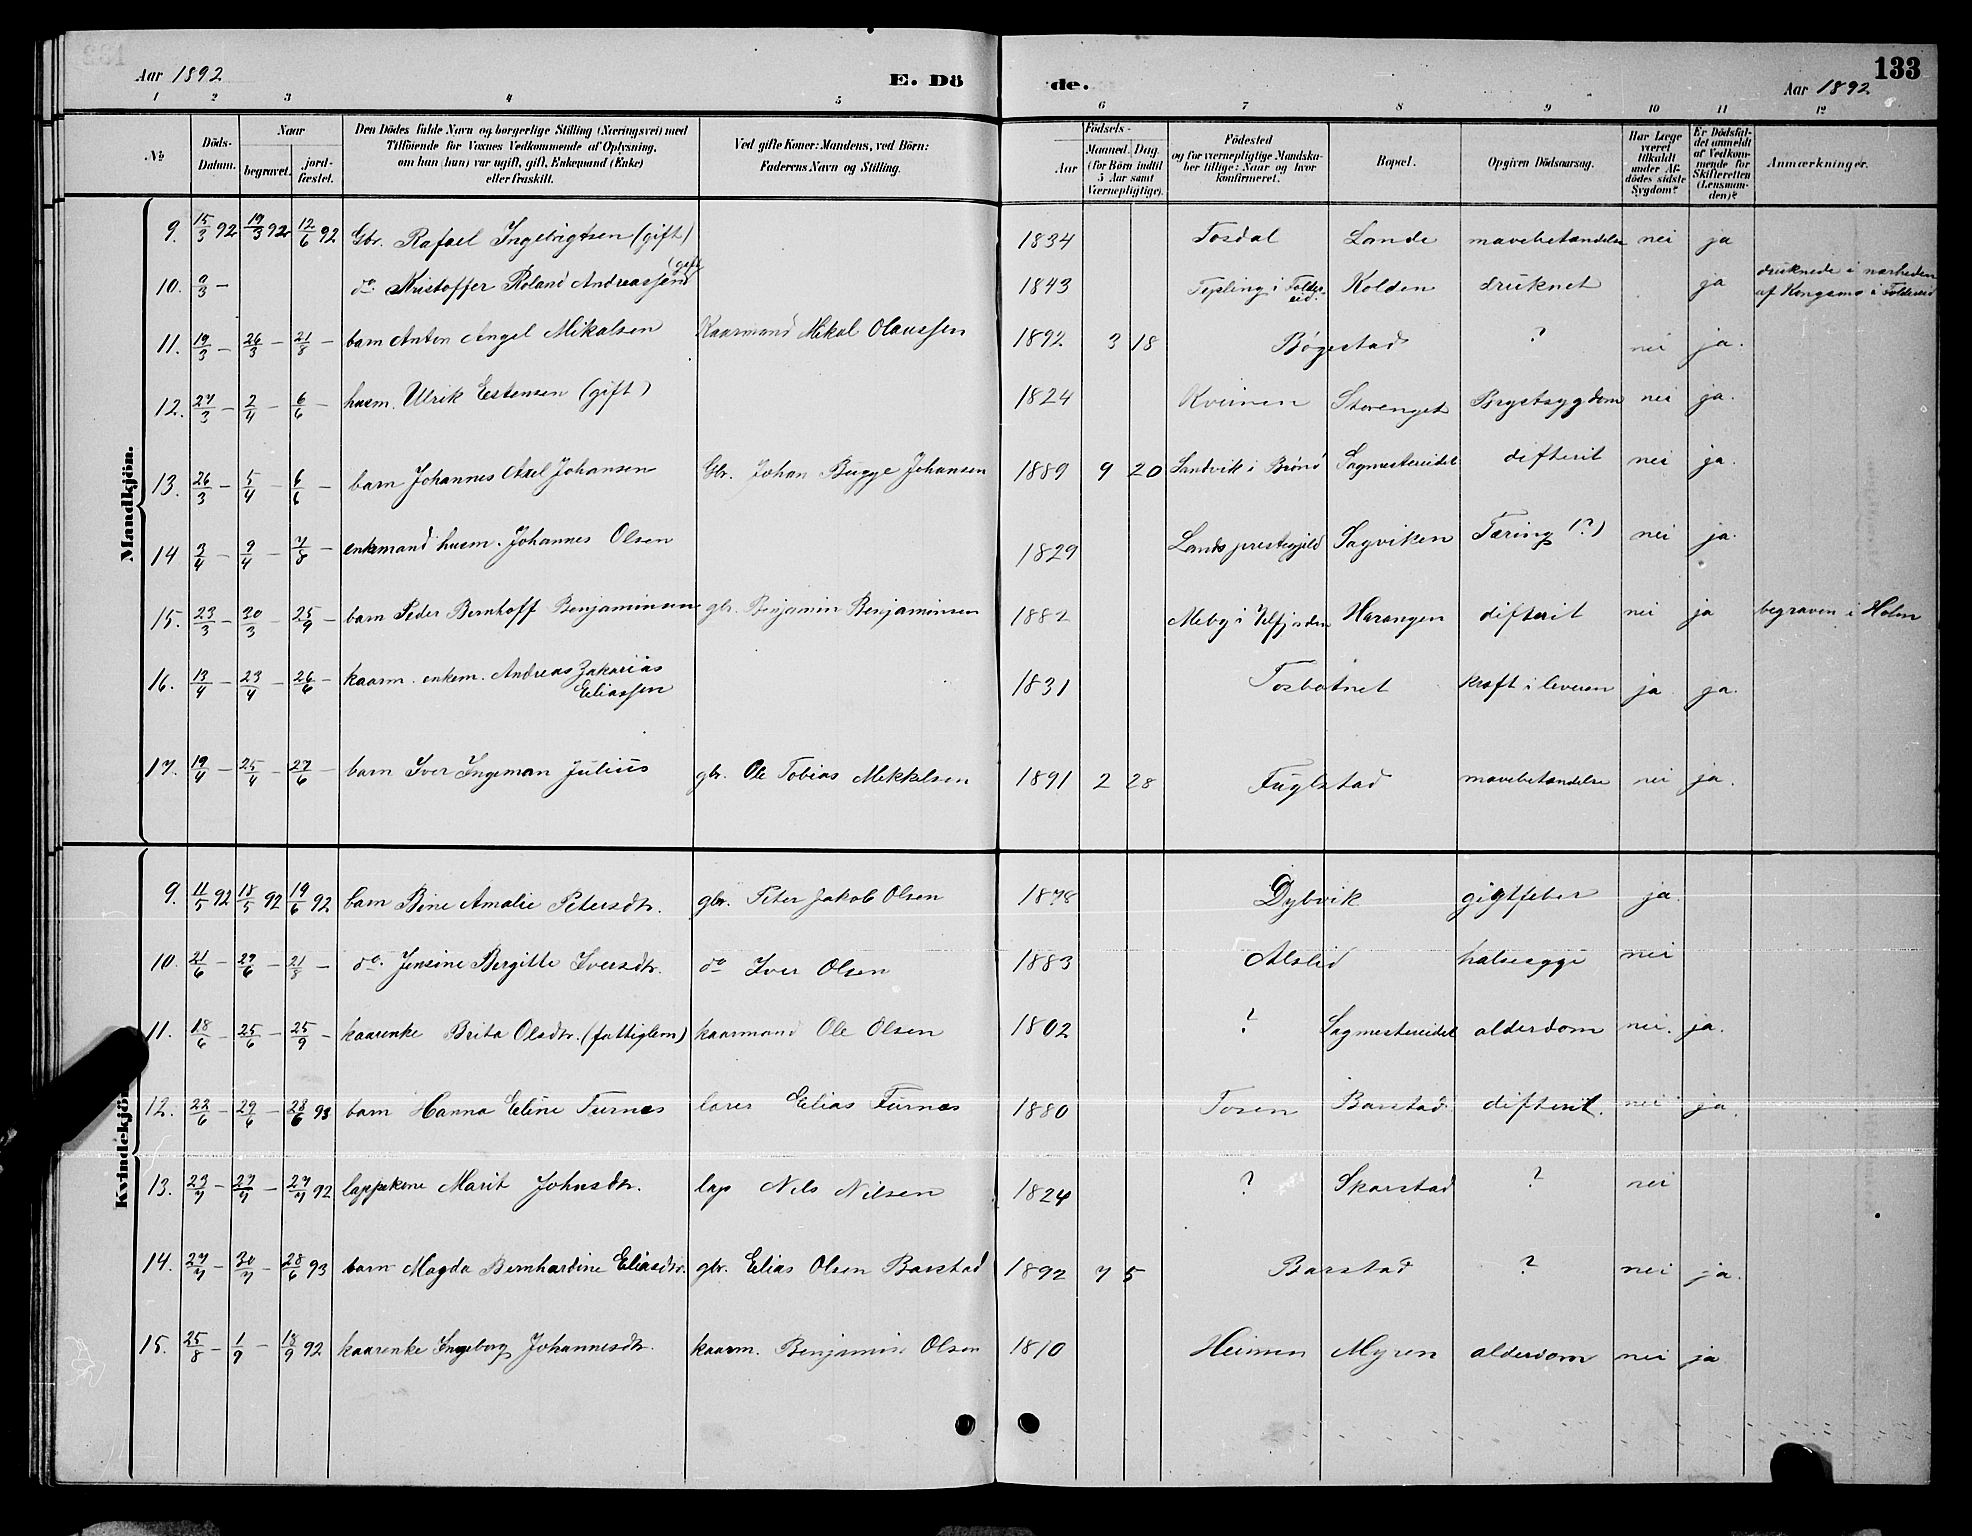 133
Aar 1892
E. Dö de.
Aar 1892
1 2 3 4 5 6 7 8 9 10 11 12
No.
Döds-Datum.
Naar
begravet.
jord-fæstet.
Den Dödes fulde Navn og borgerlige Stilling (Næringsvei) med
Tilföiende for Voxnes Vedkommende af Oplysning,
om han (hun) var ugift, gift, Enkemand (Enke)
eller fraskilt.
Ved gifte Koner: Mandens, ved Börn:
Faderens Navn og Stilling.
Födsels-
Aar
Maaned. Dag.
(for Börn indtil
5 Aar samt
Værnepligtige).
Födested
og for værnepligtige Mandska-
ber tillige: Naar og hvor
konfirmeret.
Bopæl.
Opgiven Dödsaarsag.
Har Læge
været
tilkaldt
under Af-
dödes sidste
Sygdom?
Er Dödsfal-
det anmeldt
af Vedkom-
mende for
Skifteretten
(Lensman-
den)?
Anmærkninger.
Mandkjön.
9. 15/3 92 19/3 92 12/6 92 Gbr. Rafael Ingebrigtsen (gift) 1834 Tosdal Lande mavebetændelse nei ja
10. 9/3 — do Kristoffer Roland Andreassen (gift) 1843 Tepling i Foldereid Kolden druknet ja druknede i nærheden
af Kongsmo i Foldereid
11. 19/3 — 26/3 — 21/8 — barn Anton Angel Mikalsen Kaarmand Mikal Olaussen 1892 3 18 Bøgestad ? nei ja.
12. 27/3 — 2/4 — 6/6 — husm. Ulrik Estensen (gift) 1824 Kveinen Storenget Brystsygdom nei ja.
13. 26/3 — 5/4 — 6/6 — barn Johannes Axel Johansen Gbr. Johan Bugge Johansen 1889 9 20 Sandvik i Brönö Sagmestereidet difterit nei ja.
14 3/4 — 9/4 — 7/8 — enkemand husm. Johannes Olsen 1829 Lands prestegjeld Sagviken Tæring (?) nei ja.
15. 23/3 — 30/3 — 25/9 — barn Peder Bernhoff Benjaminsen gbr. Benjamin Benjaminsen 1882 Meby i Velfjorden Harangen difterit nei ja begraven i Holm
16. 13/4 — 23/4 — 26/6 — kaarm. enkem. Andreas Zakarias
Eliassen 1831 Tosbotnet kræft i leveren ja ja.
17. 19/4 — 25/4 — 27/6 — barn Iver Ingeman Julius gbr. Ole Tobias Mikkelsen 1891 2 28 Fuglstad mavebetændelse nei ja.
Kvindekjön
9. 11/5 92 18/5 92 19/6 92 barn Bine Amalie Petersdtr. gbr. Peter Jakob Olsen 1878 Dybvik gigtfeber ja.
10. 21/6 — 29/6 — 21/8 — do. Jensine Bergitte Iversdtr. do Iver Olsen 1883 Alslid halssyge nei
11. 18/6 — 25/6 — 25/9 — kaarenke Brita Olsdtr. (fattiglem) kaarmand Ole Olsen 1802 ? Sagmestereidet alderdom nei. ja.
12. 22/6 — 29/6 — 28/6 93 barn Hanna Eline Furnes lærer Elias Furnes 1880 Tosen Barstad difterit. nei ja.
13. 23/7 — 27/7 — 27/7 92 lappekone Marit Johnsdtr. lap Nils Nilsen 1824 ? Skarstad ? nei
14. 27/7 — 30/7 — 28/6 93 barn Magda Bernhardine Eliasdtr. gbr. Elias Olsen Barstad 1892 7 5 Barstad ? nei ja.
15. 25/8 — 1/9 — 18/9 92 kaarenke Ingeborg Johannesdtr. kaarm. Benjamin Olsen 1810 Heimen Myren alderdom nei ja